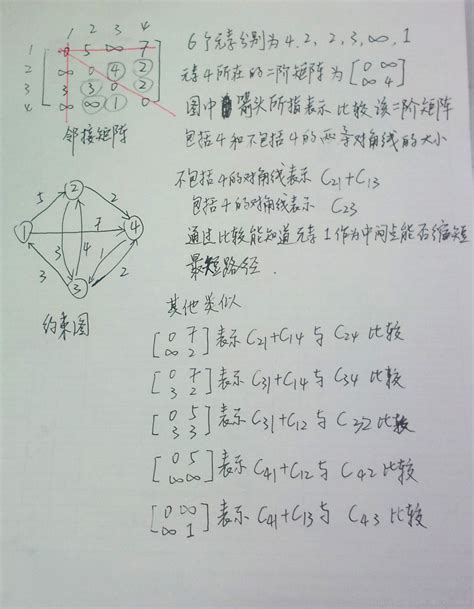 1 2 3 4
1 0 5 ∞ 7
2 ∞ 0 4 2
3 3 3 0 2
4 ∞ ∞ 1 0
邻接矩阵
5 2 2 1 7 4 3 3 4 1 2 3
约束图
6个元素分别为4,2,2,3,∞,1
元素4所在的二阶矩阵为 [0 ∞
∞ 4]
图中箭头所指表示比较该二阶矩阵
包括4和不包括4的两条对角线的大小
不包括4的对角线表示 C21+C13
包括4的对角线表示 C23
通过比较能知道元素1作为中间点能否缩短
最短路径.
其他类似
[0 7
∞ 2] 表示 C21+C14 与 C24 比较
[0 7
3 2] 表示 C31+C14 与 C34 比较
[0 5
3 3] 表示 C31+C12 与 C32 比较
[0 5
∞ ∞] 表示 C41+C12 与 C42 比较
[0 ∞
∞ 1] 表示 C41+C13 与 C43 比较